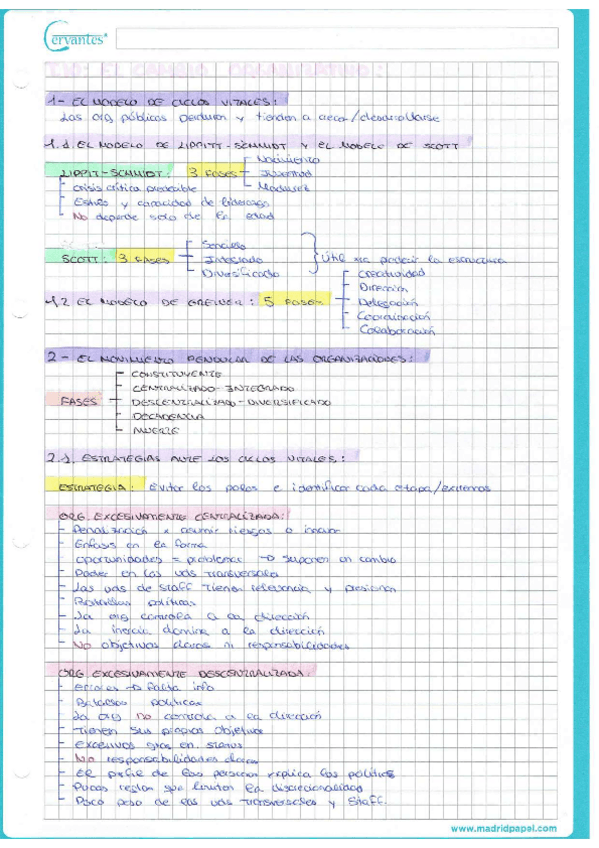 Cervantes
1- EL MODELO DE CICLOS VITALES:
Las org. públicas perduran y tienden a crecer/desarrollarse
1.1. EL MODELO DE LIPPITT-SCHMIDT Y EL MODELO DE SCOTT
LIPPIT-SCHMIDT: 3 FASES
Nacimiento
Juventud
Madurez
Crisis crítica probable
Estilos y capacidad de liderazgo
No depende solo de la edad
SCOTT: 3 FASES
Sencillo
Integrado
Diversificado
Útil xa predecir la estructura
1.2 EL MODELO DE GREINER: 5 FASES
Creatividad
Dirección
Delegación
Coordinación
Colaboración
2- EL MOVIMIENTO PENDULAR DE LAS ORGANIZACIONES:
FASES
CONSTITUYENTE
CENTRALIZADO-INTEGRADO
DESCENTRALIZADO-DIVERSIFICADO
DECADENCIA
MUERTE
2.1. ESTRATEGIAS ANTE LOS CICLOS VITALES:
ESTRATEGIA: Evitar los polos e identificar cada etapa/extremos
ORG. EXCESIVAMENTE CENTRALIZADA:
Penalización x asumir riesgos o innovar
Énfasis en la forma
Oportunidades = problemas → suponen un cambio
Poder en las uds transversales
Las uds de staff tienen relevancia y presionan
políticas
La org controla a la dirección
La inercia domina a la dirección
No objetivos claros ni responsabilidades
ORG. EXCESIVAMENTE DESCENTRALIZADA:
Errores → Falta info
políticas
La org no controla a la dirección
Tienen sus propios objetivos
Excesivos en status
No responsabilidades claras
El perfil de las personas explica las políticas
Pocas reglas que limiten la discrecionalidad
Poco peso de las uds transversales y Staff.
www.madridpapel.com